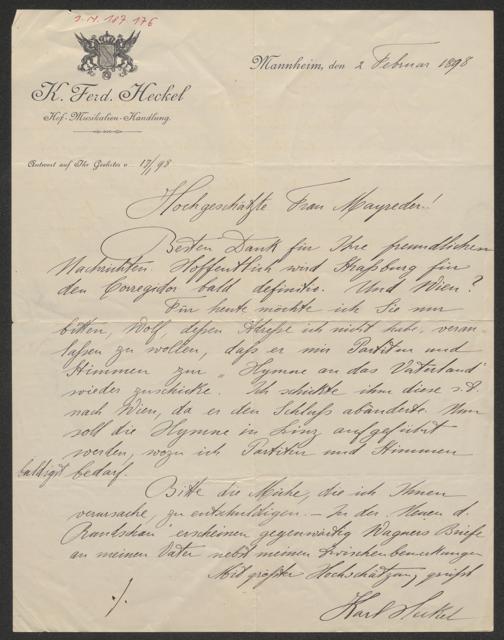 J.N. 187 176
Mannheim, den 2 Februar 1898
K. Ferd. Heckel
Hof-Musikalien-Handlung.
Antwort auf Ihr Geehrtes v. 17/1 98
Hochgeschätzte Frau Mayreder!
Besten Dank für Ihre freundlichen
Nachrichten. Hoffentlich wird Straßburg für
den Corregidor bald definitiv. Und Wien?
Für heute möchte ich Sie nur
bitten, Wolf, deßen Adreße ich nicht habe, veran-
laßen zu wollen, daß er mir Partitur und
Stimmen zur "Hymne an das Vaterland"
wieder zuschicke. Ich schickte ihm diese s.Z.
nach Wien, da er den Schluß abänderte. Nun
soll die Hymne in Linz aufgeführt
werden, wozu ich Partitur und Stimmen
baldigst bedarf.
Bitte die Mühe, die ich Ihnen
verursache, zu entschuldigen. – In der "Neuen d.
Rundschau" erscheinen gegenwärtig Wagners Briefe
an meinen Vater nebst meinen Zwischenbemerkungen
Mit größter Hochschätzung grüßt
Karl Heckel